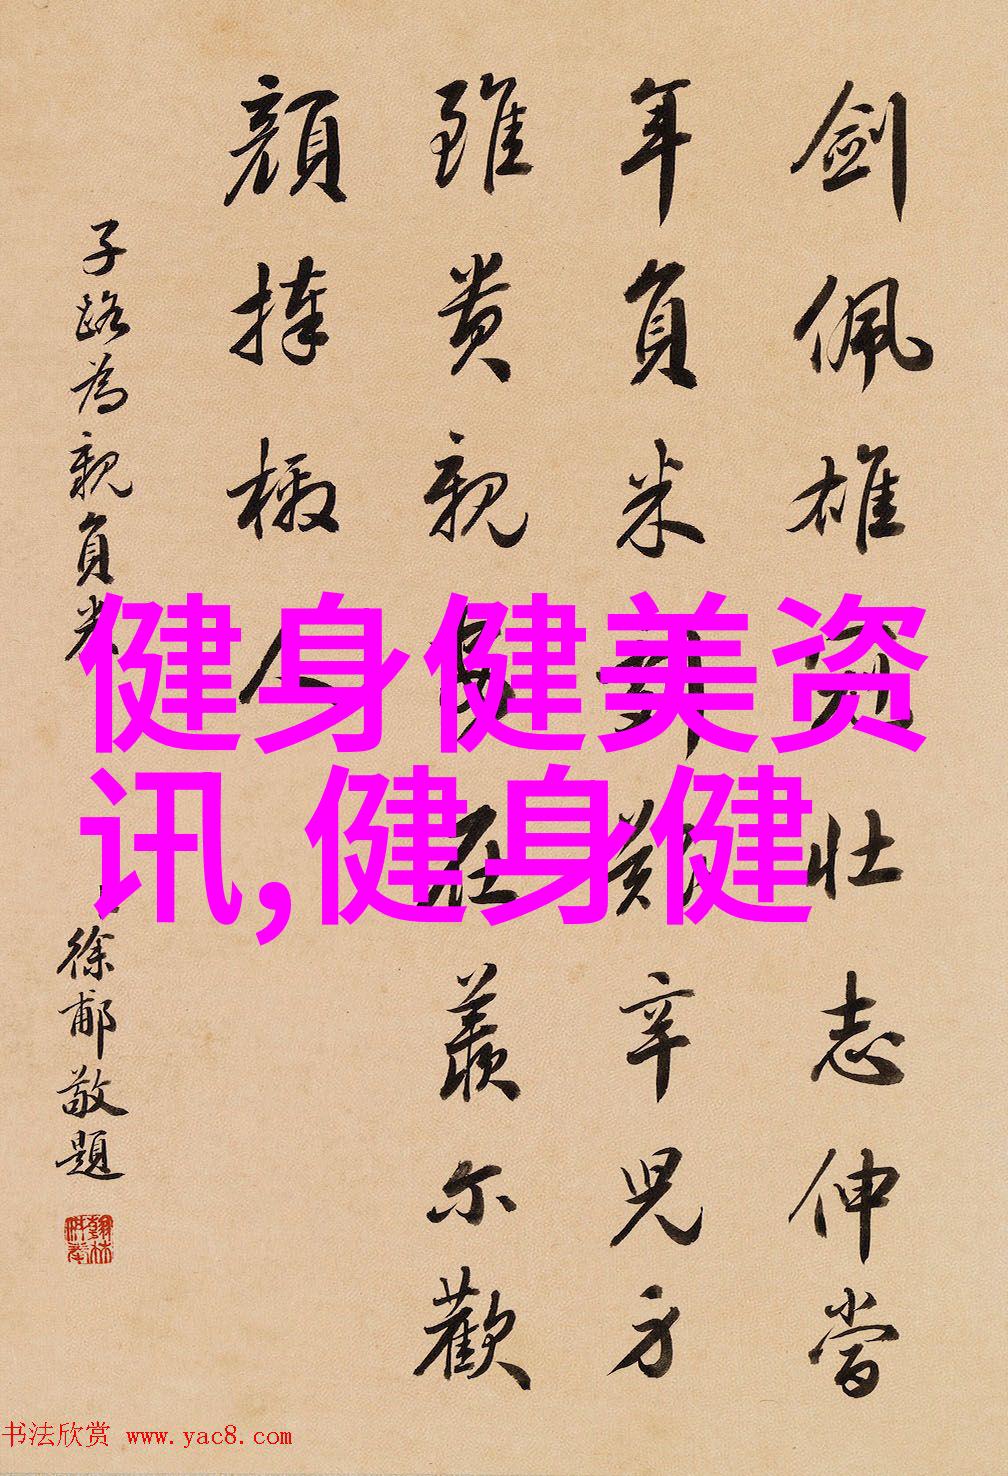 剑佩雄冠壮志伸當
年負米艱辛兒方
雖貴親安在羨尔歡
顏捧檄人
子路為親負米
徐郙敬題
健身健美资
讯,健身健
书法欣赏 www.yac8.com